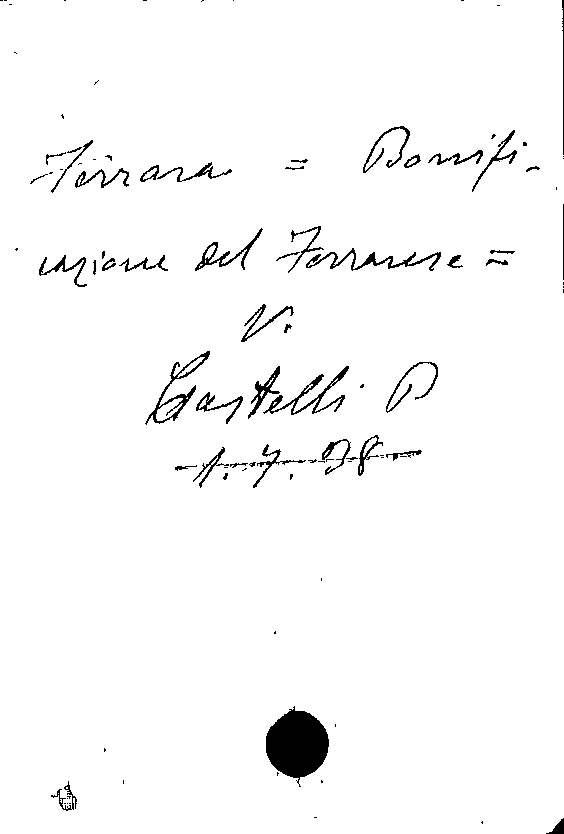 Ferrara = Bonifi-
cazione del Ferrarese =
V.
Castelli P
1.7.38.